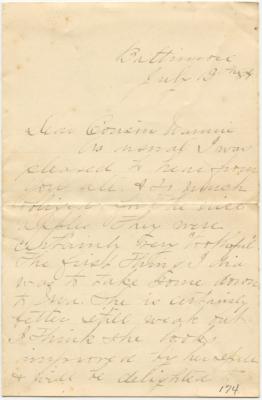 Baltimore
July
Dear Cousin Nannie
As usual I was
pleased to hear from
you all & so much
for the nice
apples they were
certainly very
The first thing I did
was to take some down
to She is certainly
better still weak but
I think she looks
improved by her
& will be delighted to
174